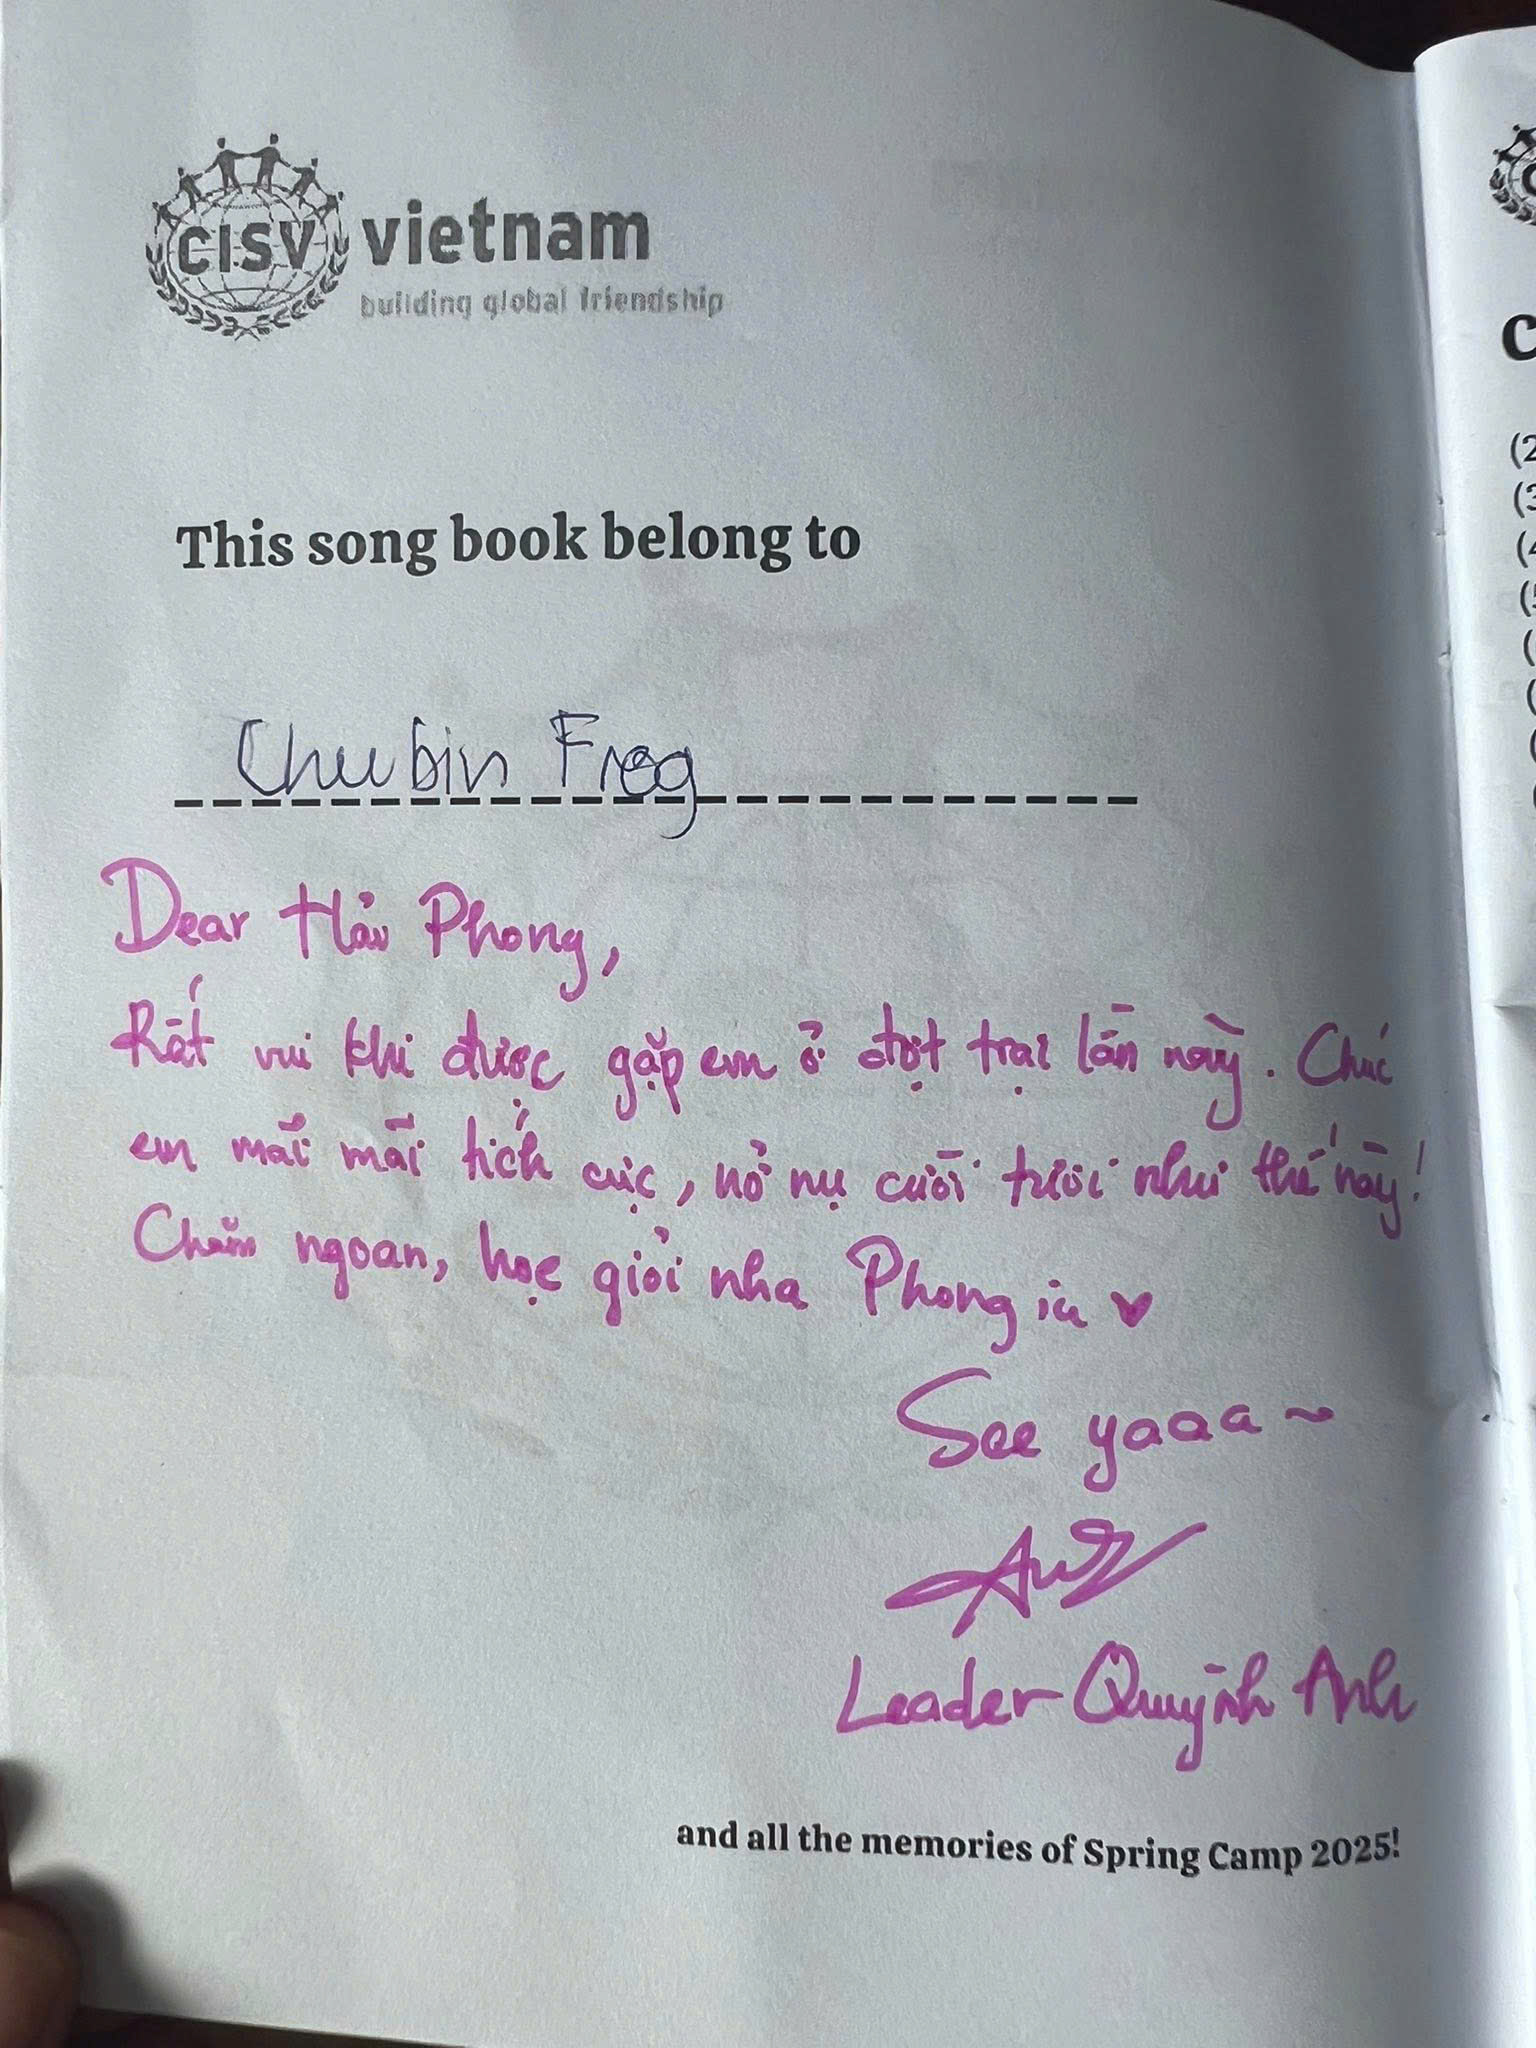 CISV vietnam
building global friendship
This song book belong to
Chubin Frog
Dear Hải Phong,
Rất vui khi được gặp em ở đợt trại lần này. Chúc
em mãi mãi tích cực, nở nụ cười tươi như thế này!
Chăm ngoan, học giỏi nha Phong iu ♥
See yaaa ~
Leader Quỳnh Anh
and all the memories of Spring Camp 2025!
C
(2
(3
(4
(5
(
(
(